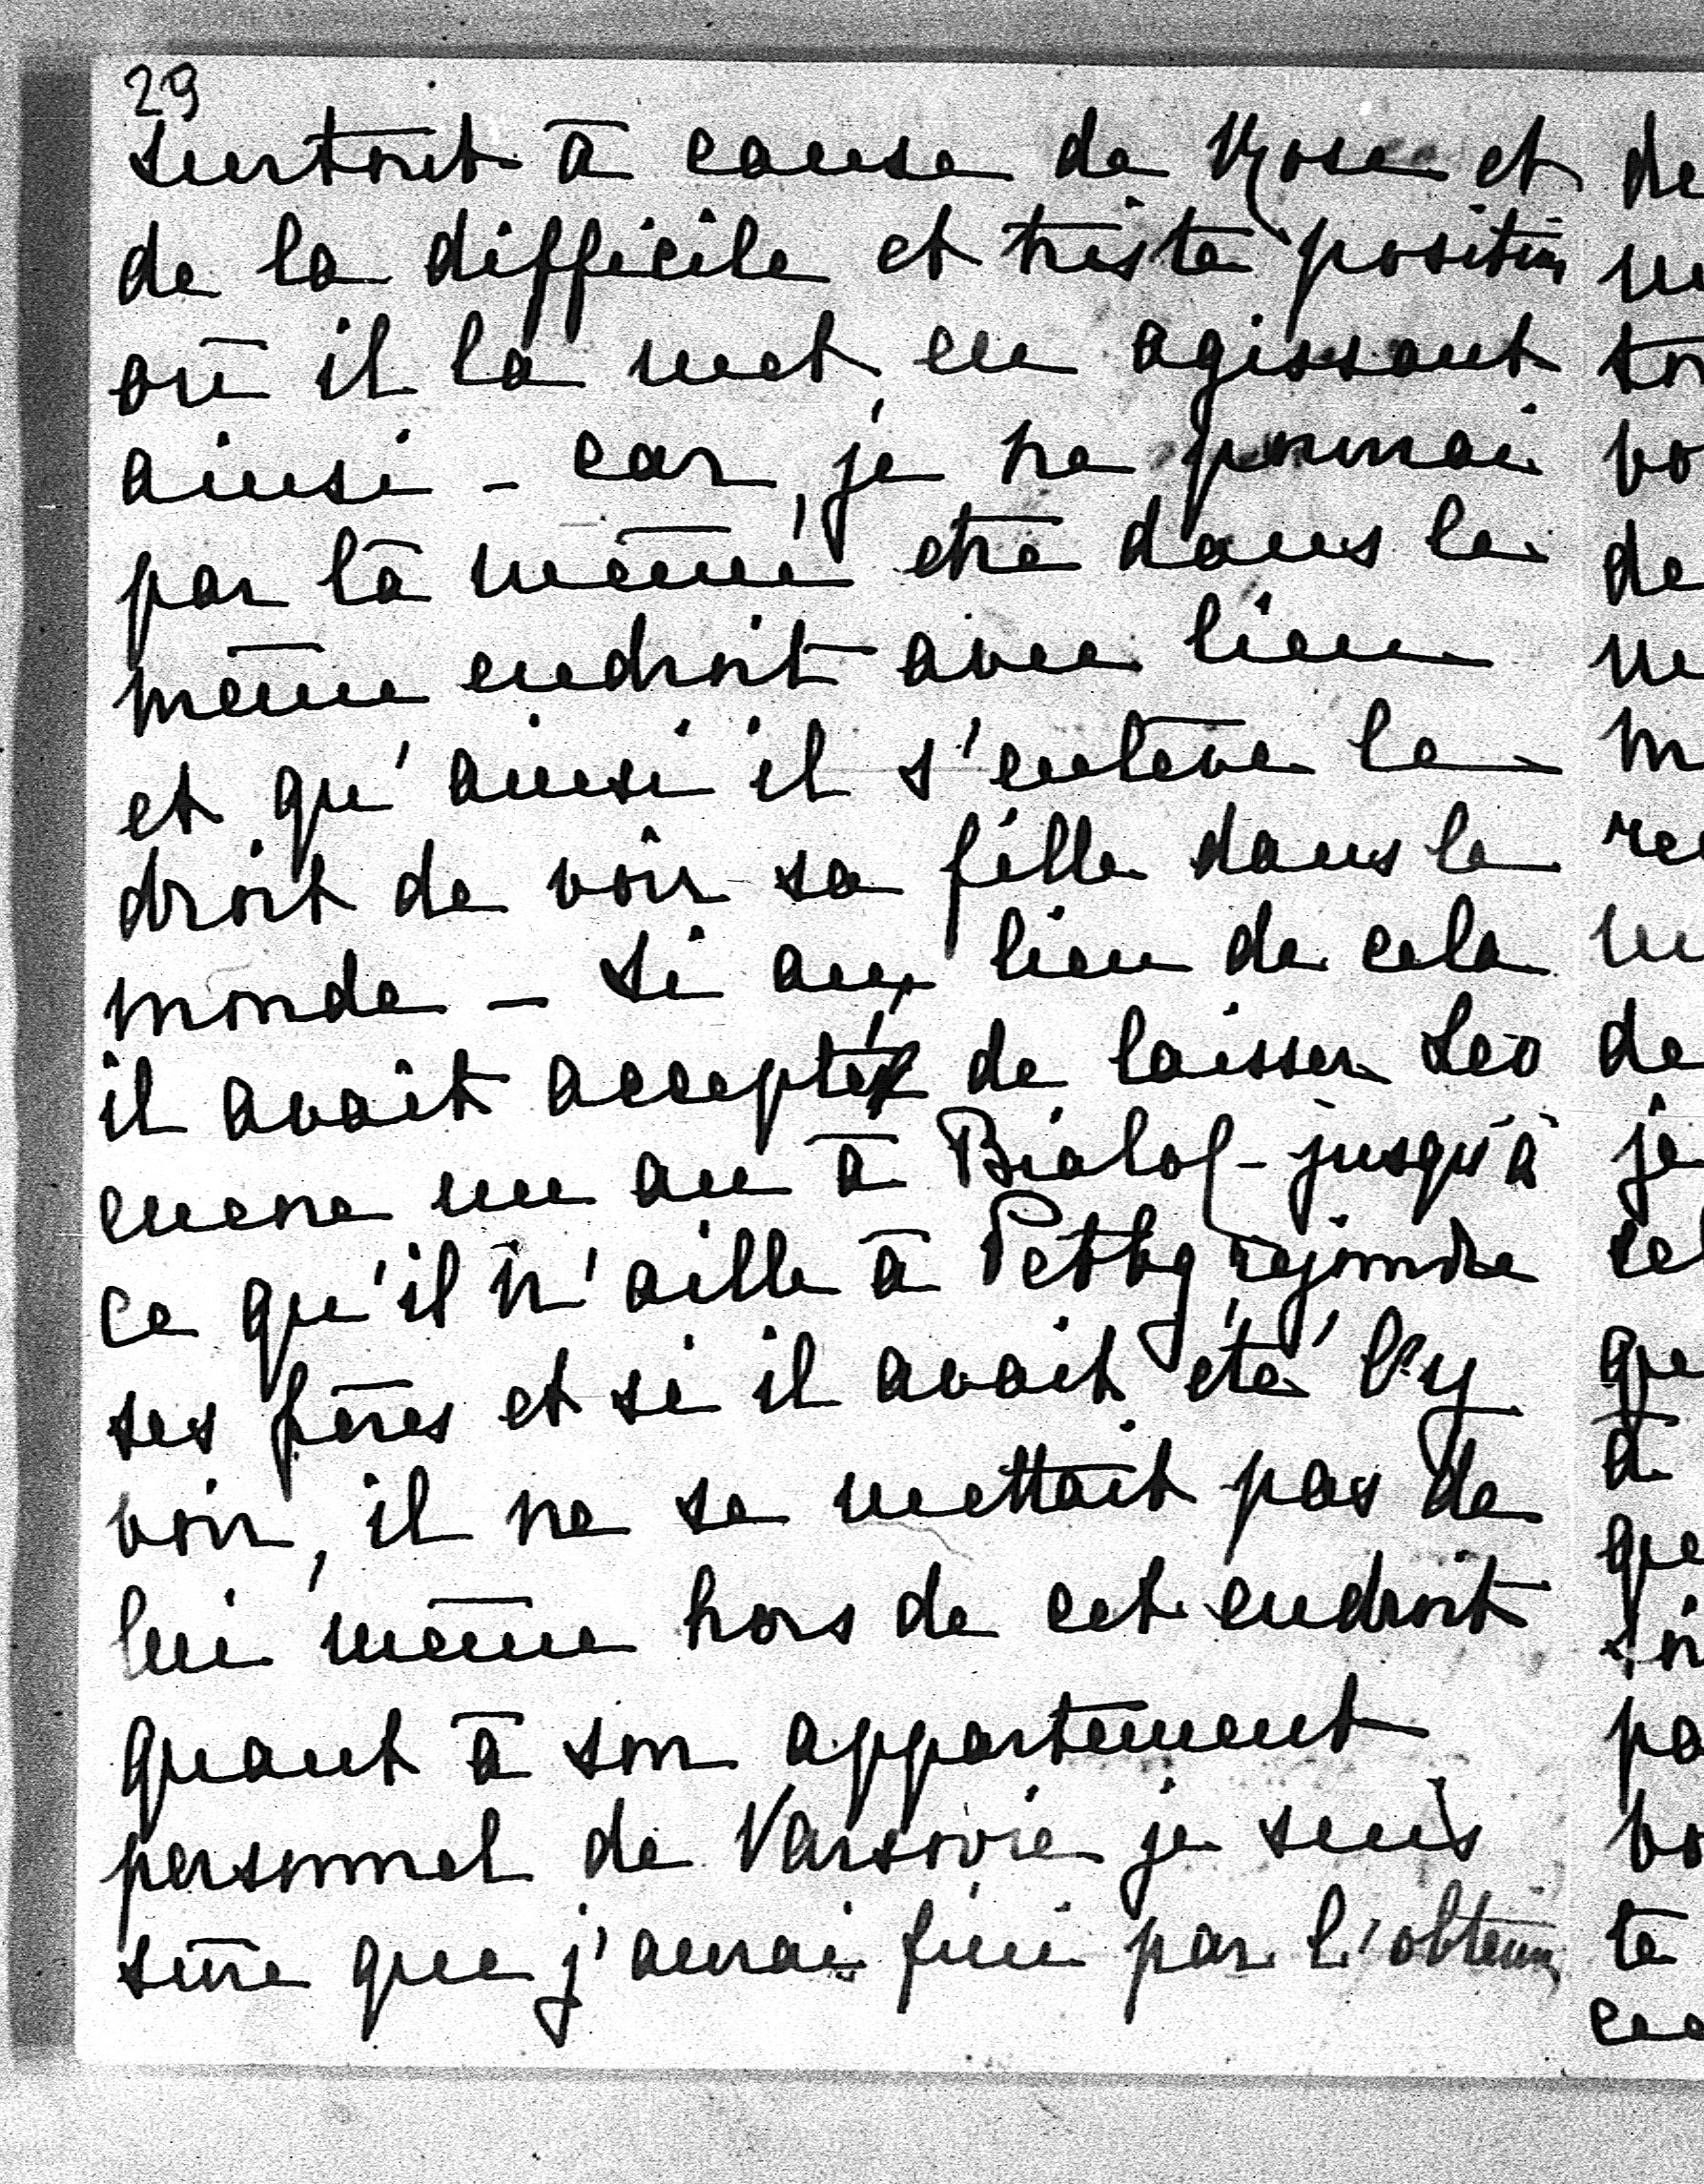 29
surtout à cause de Rose et
de la difficile et triste position
où il la met en agissant
ainsi - car, je ne pourrai
par là même être dans le
même endroit avec lieu
et qu'ainsi il s'enlève le
droit de voir sa fille dans le
monde - Si au lieu de cela
il avait accepté de laisser Léo
encore un an à Bialol - jusqu'à
ce qu'il n'aille à Petbg rejoindre
ses frères et si il avait été l'y
voir, il ne se mettait pas de
lui même hors de cet endroit
quant à son appartement
personnel de Varsovie je suis
sûre que j'aurai fini par l'obtenir